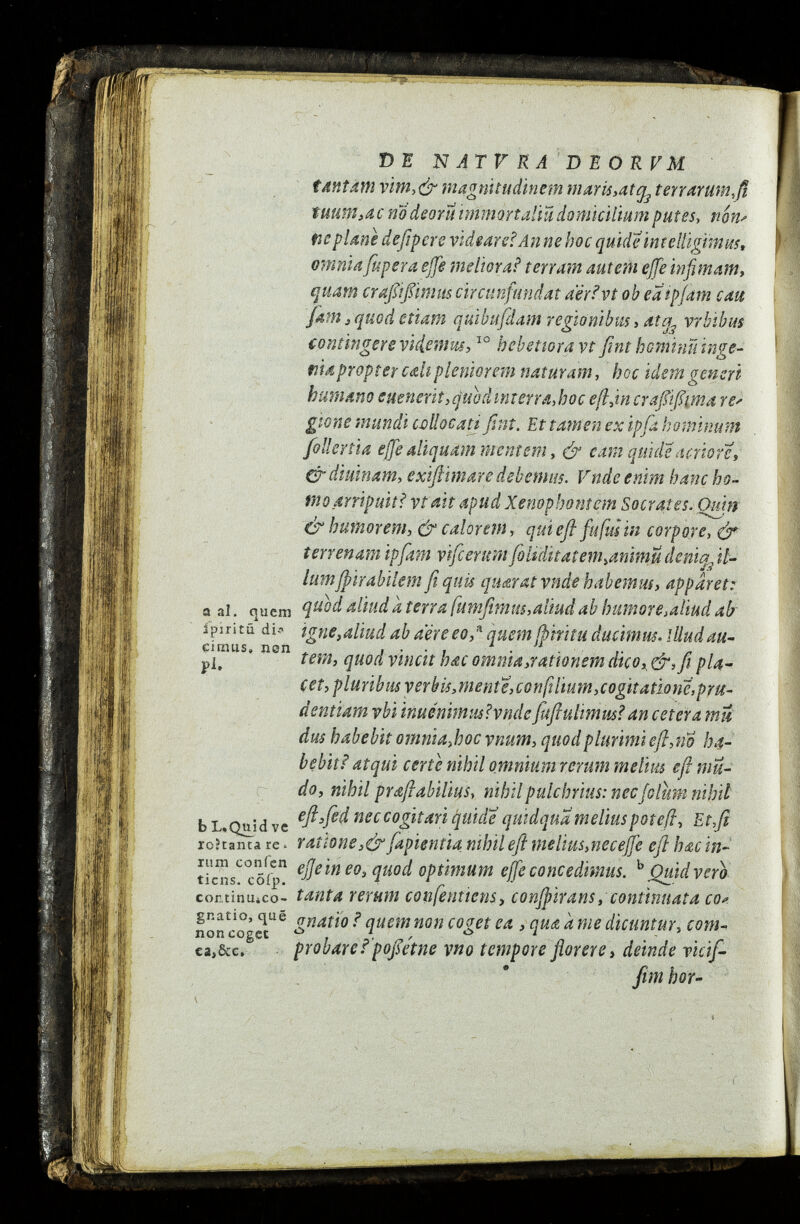 DE NATVRA DEORVM
tantam vim, & magnitudinem maris, atq; terrarum, si
tuum, ac nō deorū immortaliū domicilium putes, nōn-
ne planè desipere videare? An ne hoc quidē intelligimus,
omnia supera esse meliora? terram autem esse infimam,
quam crassissimus circunfundat aër? vt ob eā ipsam cau
sam, quod etiam quibusdam regionibus, atq; vrbibus
contingere videmus, 10 hebetiora vt sint hominū inge-
nia propter cæli pleniorem naturam, hoc idem generi
humano euenerit, quòd in terra, hoc est, in crassissima re-
gione mundi collocati sint. Et tamen ex ipsa hominum
sollertia esse aliquam mentem, & eam quidē acriorē,
& diuinam, existimare debemus. Vnde enim hanc ho-
mo arripuit? vt ait apud Xenophontem Socrates. Quin
& humorem, & calorem, qui est fusus in corpore, &
terrenam ipsam viscerum soliditatem, animū deniq; il-
lum spirabilem si quis quærat vnde habemus, apparet:
quòd aliud à terra sumsimus, aliud ab humore, aliud ab
igne, aliud ab aëre eo, a quem spiritu ducimus. Illud au-
tem, quod vincit hæc omnia, rationem dico, &, si pla-
cet, pluribus verbis, mentē, consilium, cogitationē, pru-
dentiam vbi inuēnimus? vnde sustulimus? an cetera mū
dus habebit omnia, hoc vnum, quod plurimi est, nō ha-
bebit? atqui certè nihil omnium rerum melius est mū-
do, nihil præstabilius, nihil pulchrius: nec solùm nihil
est, sed nec cogitari quidē quidquā melius potest, Et, si
ratione, & sapientia nihil est melius, necesse est hæc in-
esse in eo, quod optimum esse concedimus. b Quid verò
tanta rerum consentiens, conspirans, continuata co-
gnatio? quem non coget ea, quæ à me dicuntur, com-
probare? possétne vno tempore florere, deinde vicis-
sim hor-
a al. quem
spiritū di-
cimus. non
pl.
b L. Quid ve
rò? tanta re-
rum consen
tiens. cōsp.
continu. co-
gnatio, quē
non coget
ea, &c.